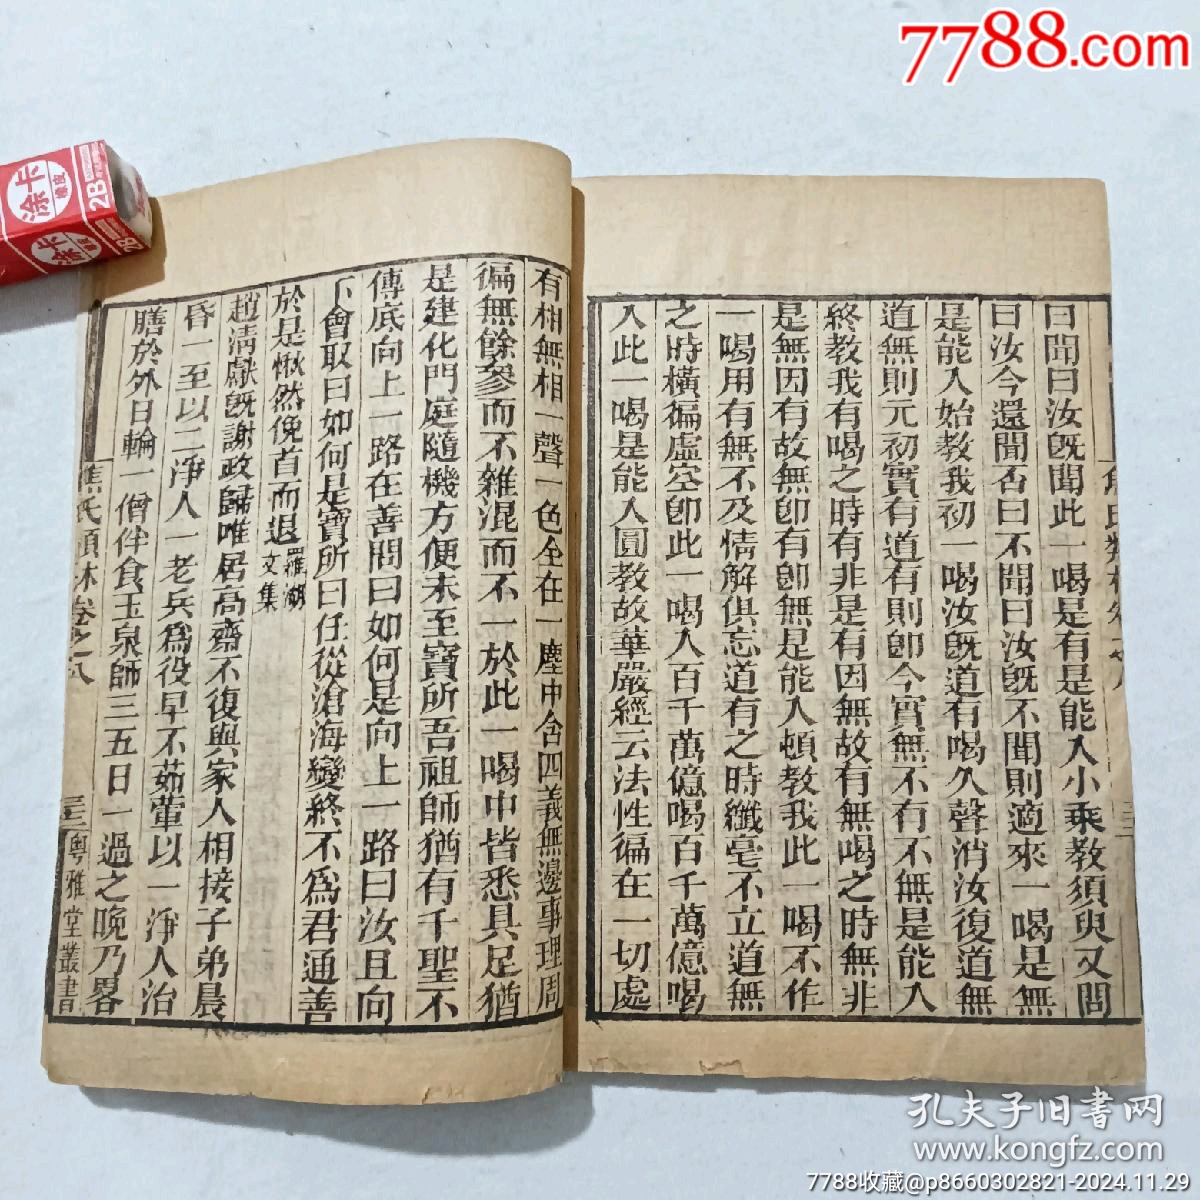 7788.com
曰聞曰汝旣聞此一喝是有是能入小乘教須臾又問
曰汝今還聞否曰不聞曰汝旣不聞則適來一喝是無
是能入始教我初一喝汝旣道有喝久聲消汝復道無
道無則元初實有道有則卽今實無不有不無是能入
終教我有喝之時有非是有因無故有無喝之時無非
是無因有故無卽有卽無是能入頓教我此一喝不作
一喝用有無不及情解俱忘道有之時纖毫不立道無
之時橫徧虛空卽此一喝入百千萬億喝百千萬億喝
入此一喝是能入圓教故華嚴經云法性徧在一切處
有相無相一聲一色全在一塵中含四義無邊事理周
徧無餘參而不雜混而不一於此一喝中皆悉具足猶
是建化門庭隨機方便未至寶所吾祖師猶有千聖不
傳底向上一路在善問曰如何是向上一路曰汝且向
下會取曰如何是寶所曰任從滄海變終不爲君通善
於是愀然俛首而退羅湖文集
趙清獻旣謝政歸唯居高齋不復與家人相接子弟晨
昏一至以二淨人一老兵爲役早不茹葷以一淨人治
膳於外日輪一僧伴食玉泉師三五日一過之晚乃畧
焦氏類林卷之八
粵雅堂叢書
涂卡
橡皮
2B
涂卡
2B
孔夫子旧书网
www.kongfz.com
7788收藏@p8660302821-2024.11.29